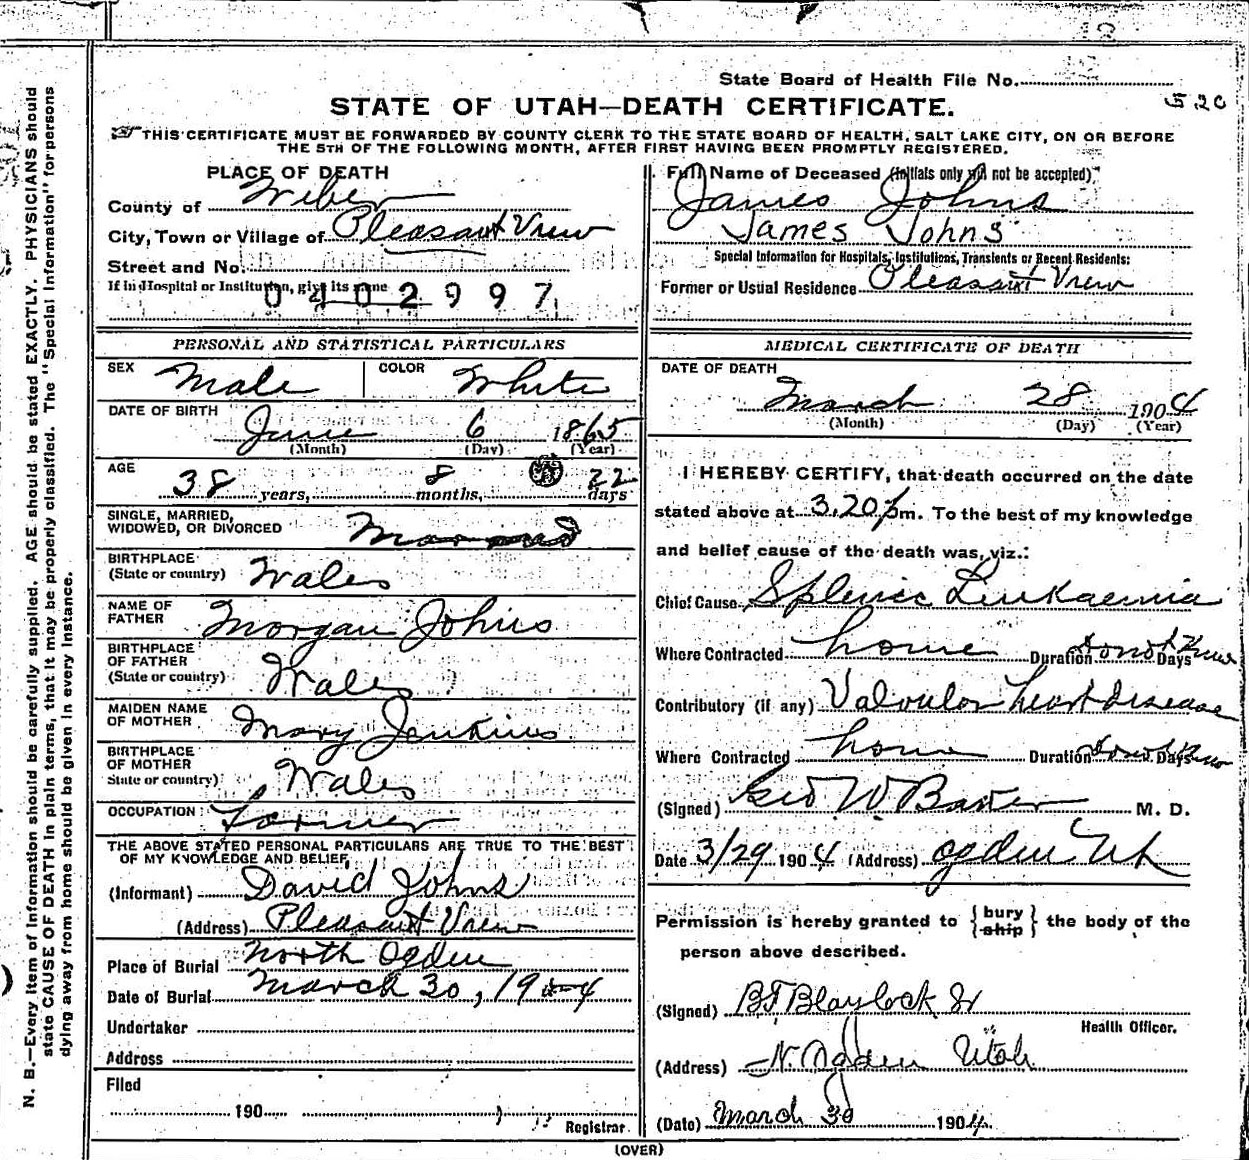 State Board of Health File No.
STATE OF UTAH—DEATH CERTIFICATE.
THIS CERTIFICATE MUST BE FORWARDED BY COUNTY CLERK TO THE STATE BOARD OF HEALTH, SALT LAKE CITY, ON OR BEFORE
THE 5TH OF THE FOLLOWING MONTH, AFTER FIRST HAVING BEEN PROMPTLY REGISTERED.
PLACE OF DEATH
County of Weber
City, Town or Village of Pleasant View
Street and No.
If in Hospital or Institution, give its name
0402997
Full Name of Deceased (Initials only will not be accepted)
James Johns
James Johns
Special Information for Hospitals, Institutions, Transients or Recent Residents:
Former or Usual Residence Pleasant View
PERSONAL AND STATISTICAL PARTICULARS
SEX Male COLOR White
DATE OF BIRTH
June 6 1865
(Month) (Day) (Year)
AGE
38 years, 8 months, 22 days
SINGLE, MARRIED,
WIDOWED, OR DIVORCED Married
BIRTHPLACE
(State or country) Wales
NAME OF
FATHER Morgan Johns
BIRTHPLACE
OF FATHER
(State or country) Wales
MAIDEN NAME
OF MOTHER Mary Jenkins
BIRTHPLACE
OF MOTHER
State or country) Wales
OCCUPATION Farmer
THE ABOVE STATED PERSONAL PARTICULARS ARE TRUE TO THE BEST
OF MY KNOWLEDGE AND BELIEF,
(Informant) David Johns
(Address) Pleasant View
Place of Burial North Ogden
Date of Burial March 30, 1904
Undertaker
Address
Filed
190
Registrar.
MEDICAL CERTIFICATE OF DEATH
DATE OF DEATH
March 28 1904
(Month) (Day) (Year)
I HEREBY CERTIFY, that death occurred on the date
stated above at 3.20 p m. To the best of my knowledge
and belief cause of the death was, viz.:
Chief Cause Splenic Leukaemia
Where Contracted home Duration do not Know Days
Contributory (if any) Valvular heart disease
Where Contracted home Duration do not Know Days
(Signed) Geo W Baxter M. D.
Date 3/29 1904 (Address) Ogden Ut
Permission is hereby granted to {bury ship} the body of the
person above described.
(Signed) BF Blaylock Sr
Health Officer.
(Address) N. Ogden Utah
(Date) March 30 1904.
(OVER)
N. B.—Every item of Information should be carefully supplied. AGE should be stated EXACTLY. PHYSICIANS should
state CAUSE OF DEATH in plain terms, that it may be properly classified. The "Special Information" for persons
dying away from home should be given in every instance.